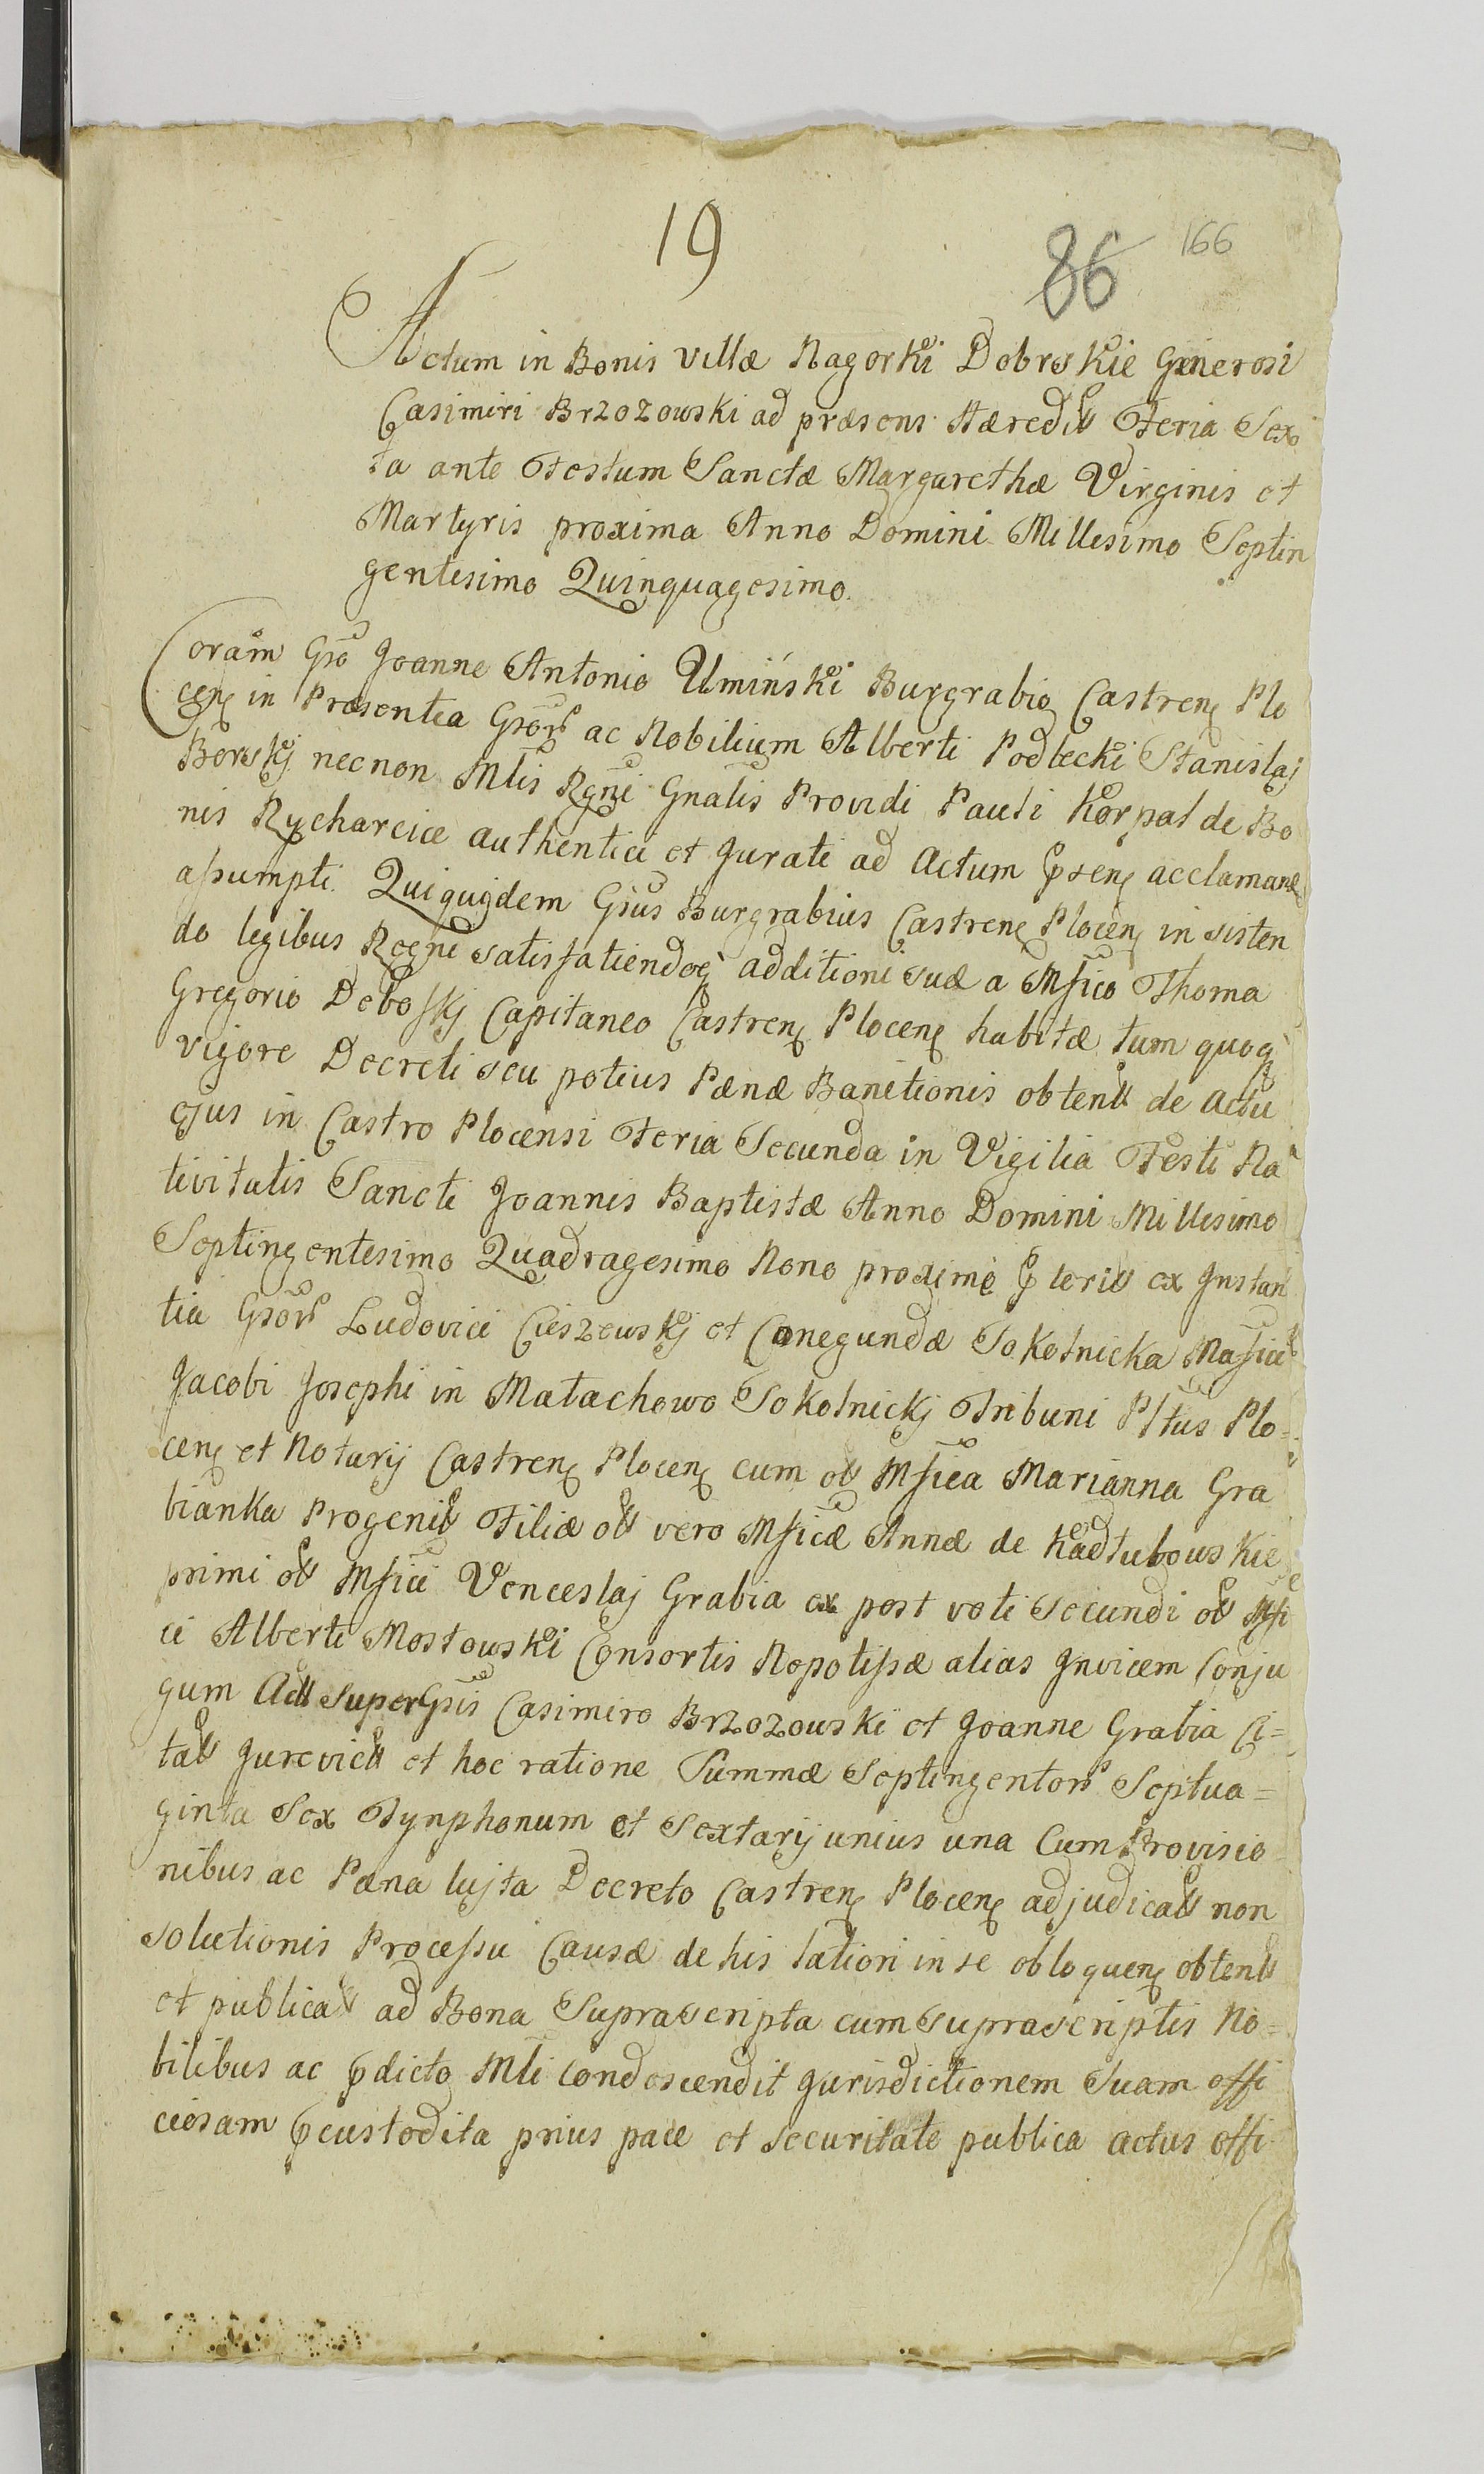 19
86 166
Actum in Bonis Villæ Nagorki Dobrskie Generosi
Casimiri Brzozowski ad præsens Hæredis Feria Sex
ta ante Festum Sanctæ Margarethæ Virginis et
Martyris proxima Anno Domini Millesimo Septin
gentesimo Quinquagesimo.
Coram Gso Joanne Antonio Umiński Burgrabio Castren Plo
cen in Præsentia Gsor ac Nobilium Alberti Podlecki Stanislaj
Borskj necnon Mlis Rgni Gnalis Providi Pauli Korpal de Bo
nis Rycharcice authentici et Jurati ad Actum psen acclamand
assumpti. Quiquidem Gsus Burgrabius Castren Plocen in sisten
do legibus Regni satisfatiendoq additioni suæ a Mfico Thoma
Gregorio Dębosskj Capitaneo Castren Plocen habitæ tum quoq
vigore Decreti seu potius Pænæ Banitionis obtent de Actu
ejus in Castro Plocensi Feria Secunda in Vigilia Festi Na
tivitatis Sancti Joannis Baptistæ Anno Domini Millesimo
Septingentesimo Quadragesimo Nono proxime pteriti ex Jnstan
tia Gsor Ludovici Cieszewskj et Conegundæ Sokolnicka Mafici
Jacobi Josephi in Małachowo Sokolnickj Tribuni Pltus Plo=
cen et Notarij Castren Plocen cum ol Mfica Marianna Gra
bianka Progenit Filiæ ol vero Mficæ Annæ de Kadłubowskie
primi ol Mfici Venceslaj Grabia ex post voti Secundi ol Mfi
ci Alberti Mostowski Consortis Nepotissæ alias Jnvicem Conju
gum Act Super Gsis Casimiro Brzozowski et Joanne Grabia Ci=
tat Jurevict et hoc ratione Summæ Septingentor Septua=
ginta Sex Tynphonum et Sextarij unius una Cum Provisio
nibus ac Pæna lujta Decreto Castren Plocen adjudicat non
solutionis Processu Causæ de his latiori in se obloquen obtent
et publicat ad Bona Suprascripta cum suprascriptis No=
bilibus ac pdicto Mli condescendit Jurisdictionem Suam offi
ciosam pcustodita prius pace et securitate publica actus offi